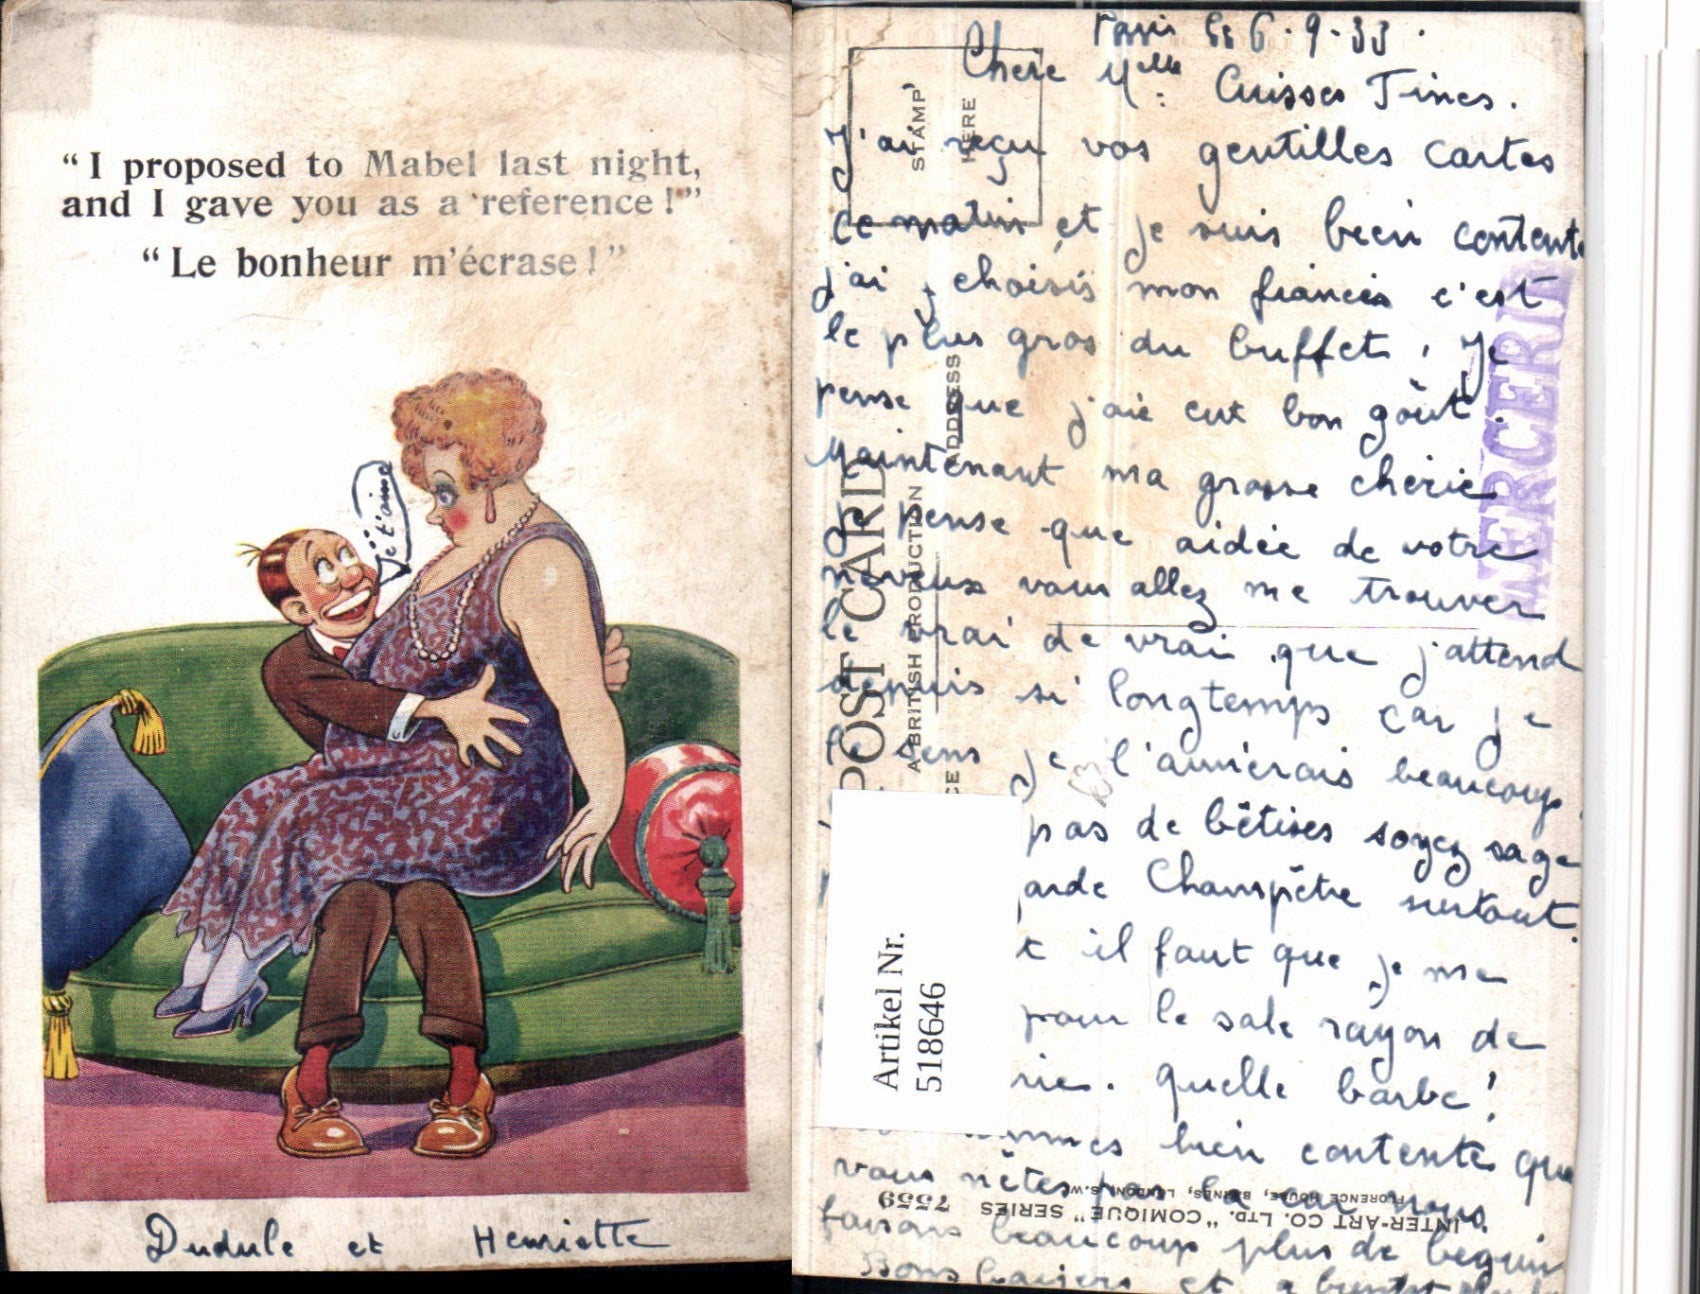 “I proposed to Mabel last night,
and I gave you as a reference!”
“Le bonheur m'écrase!”
Je t'aime
Dudule et Henriette
Paris le 6-9-33.
Chere Melle Cuisses Fines.
J'ai reçu vos gentilles cartes
ce matin et je suis bien contente
j'ai choisis mon fiancée c'est
le plus gros du buffet, Je
pense que j'aie eut bon goût.
Maintenant ma grosse cherie
je pense que aidée de votre
neveux vous allez me trouver
le vrai de vrai que j'attend
depuis si longtemps car je
le sens je l'aimerais beaucoup
pas de bêtises soyez sage
arde Champêtre surtout.
t il faut que je me
pour le sale rayon de
rie. quelle barbe!
bien contente que
vous n'êtes pas la car nous
faisons beaucoup plus de beguin
Bons baisers et a bientot
STAMP
HERE
ADDRESS
POST CARD
A BRITISH PRODUCTION
CE
MERCERIE
INTER-ART CO. LTD. "COMIQUE" SERIES 7559
FLORENCE HOUSE, BARNES, LONDON, S.W.
Artikel Nr.
518646